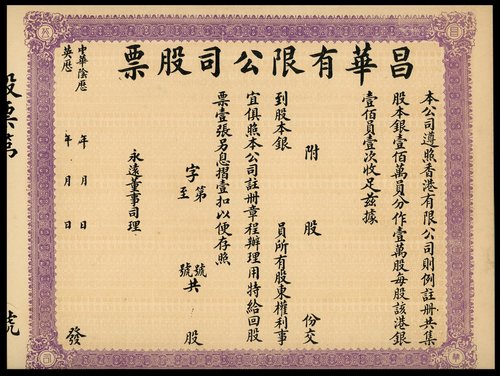 昌華有限公司股票
本公司遵照香港有限公司則例註冊共集
股本銀壹佰萬員分作壹萬股每股該港銀
壹佰員壹次收足兹據
附股份交
到股本銀 員所有股東權利事
宜俱照本公司註冊章程辦理用特給回股
票壹張另息摺壹扣以便存照
字第 號共 股
至 號
永遠董事司理
中華陰歷 年 月 日 發
英歷 年 月 日
股票第 號